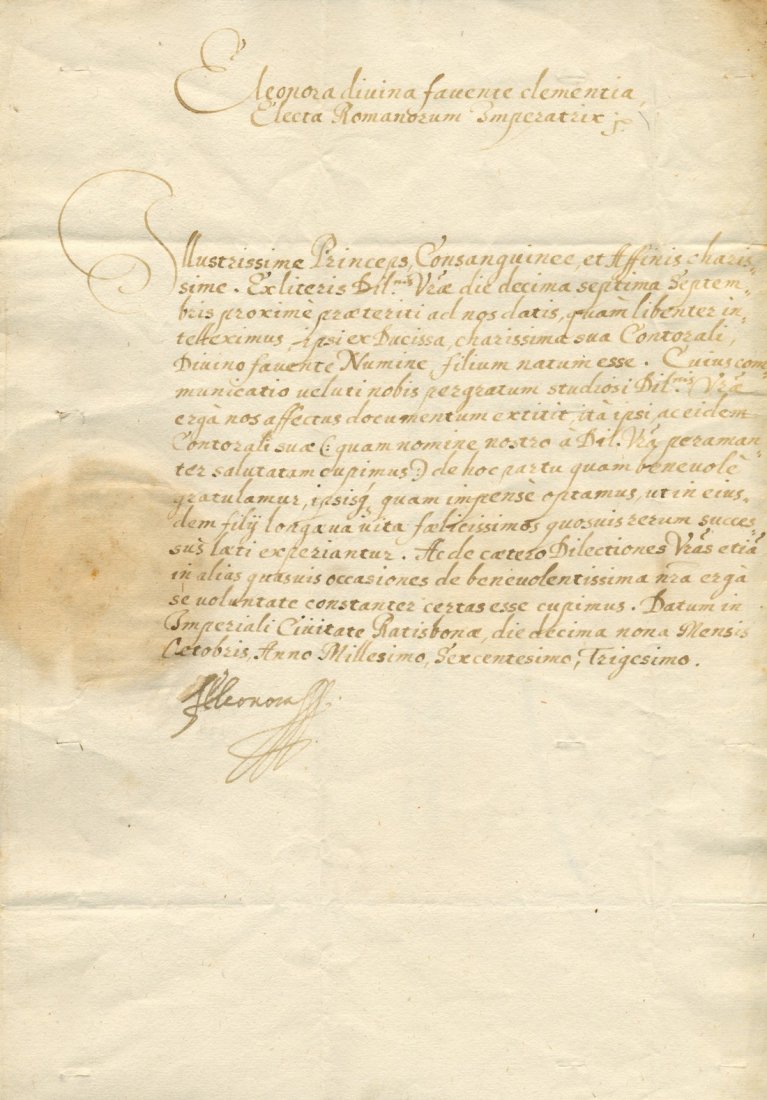 Eleonora divina favente clementia,
Electa Romanorum Imperatrix
Illustrissime Princeps, Consanguinee, et Affinis charis-
sime. Ex literis Dil.nis Vrae die decima septima Septem-
bris proximè praeteriti ad nos datis, quàm libenter in-
telleximus, ipsi ex Ducissa, charissima sua Contorali,
Divino favente Numine, filium natum esse. Cuius com-
municatio veluti nobis pergratum studiosi Dil.nis Vrae
ergà nos affectus documentum extitit, ità ipsi, ac eidem
Contorali suae (: quam nomine nostro à Dil. Vra peraman-
ter salutatam cupimus :) de hoc partu quam benevolè
gratulamur, ipsisq, quam impensè optamus, ut in eius-
dem filij longaeva vita faelicissimos quosvis rerum succes-
sus laeti experiantur. Ac de caetero Dilectiones Vras etiã
in alias quasvis occasiones de benevolentissima nrã ergà
se voluntate constanter certas esse cupimus. Datum in
Imperiali Civitate Ratisbonae, die decima nona Mensis
Octobris, Anno Millesimo, Sexcentesimo, Trigesimo.
Eleonora